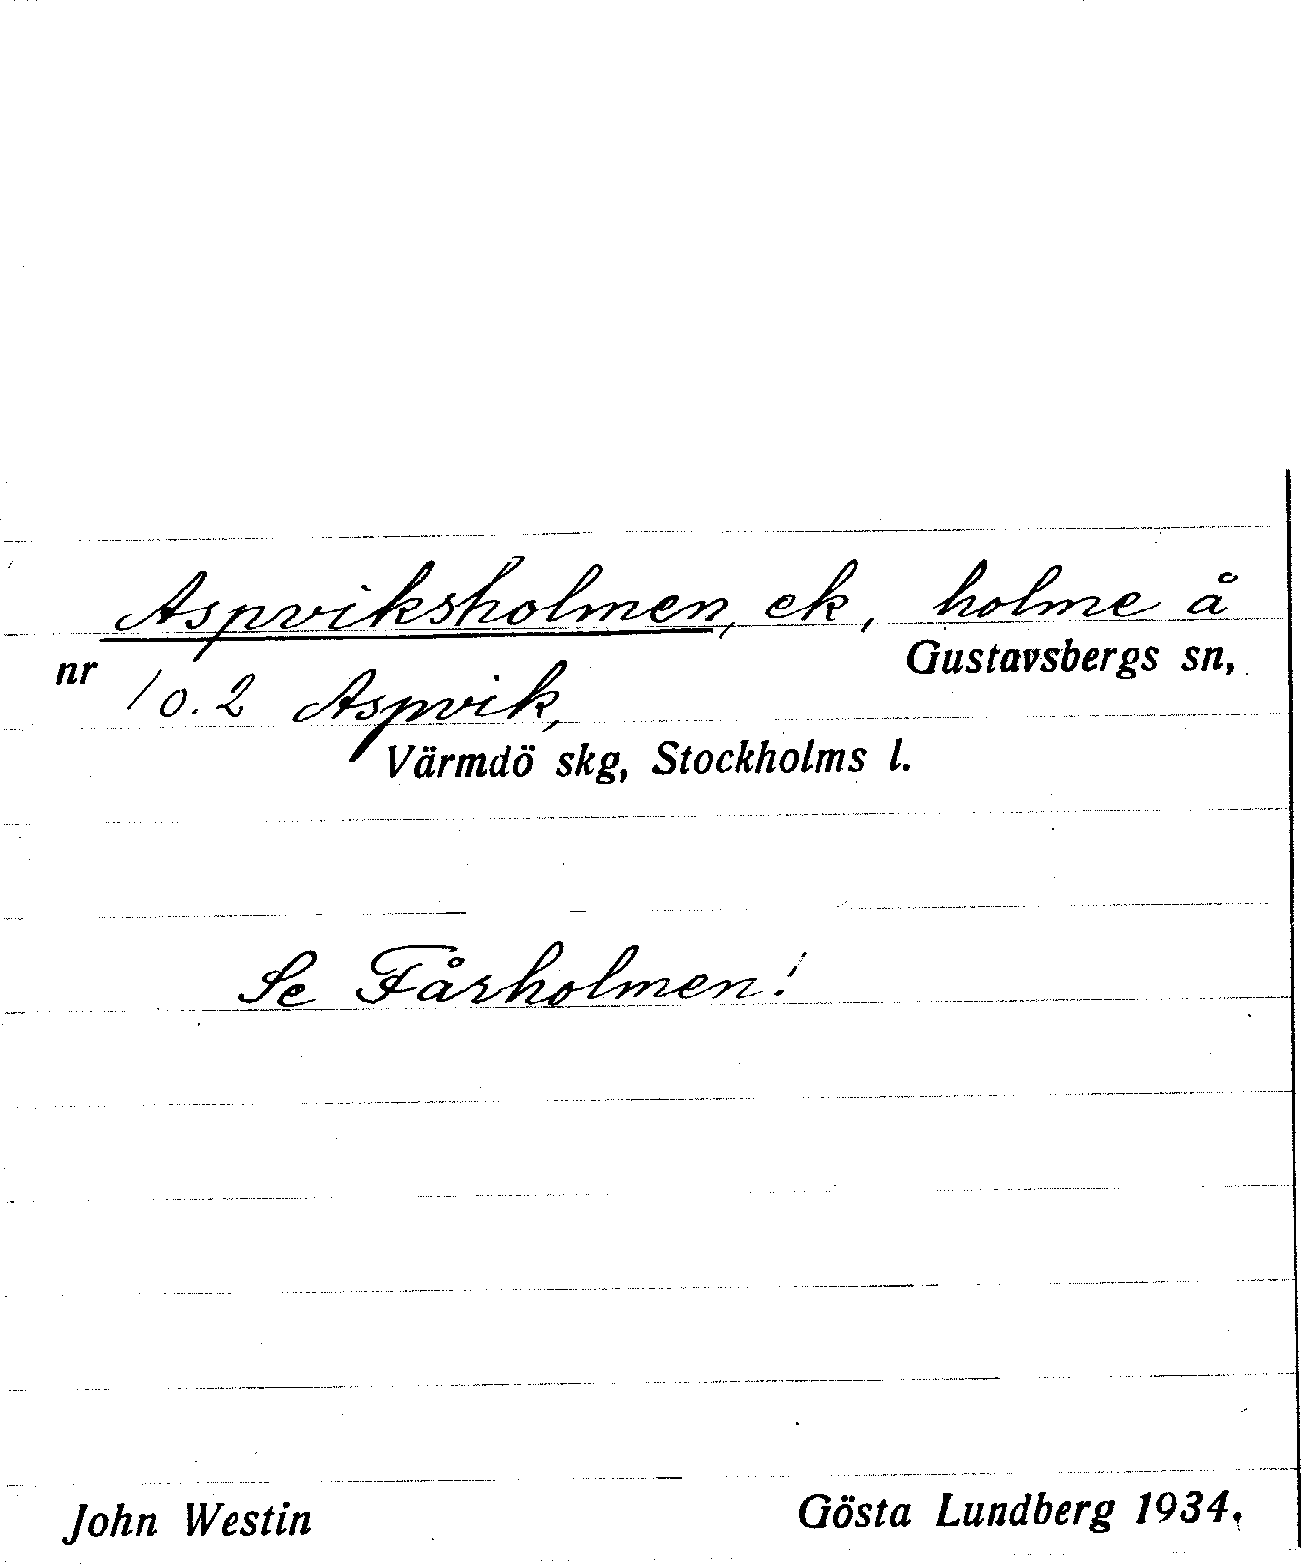 Aspviksholmen, ek, holme å
Gustavsbergs sn,
nr 1 o. 2 Aspvik,
Värmdö skg, Stockholms l.
Se Fårholmen!
John Westin Gösta Lundberg 1934.